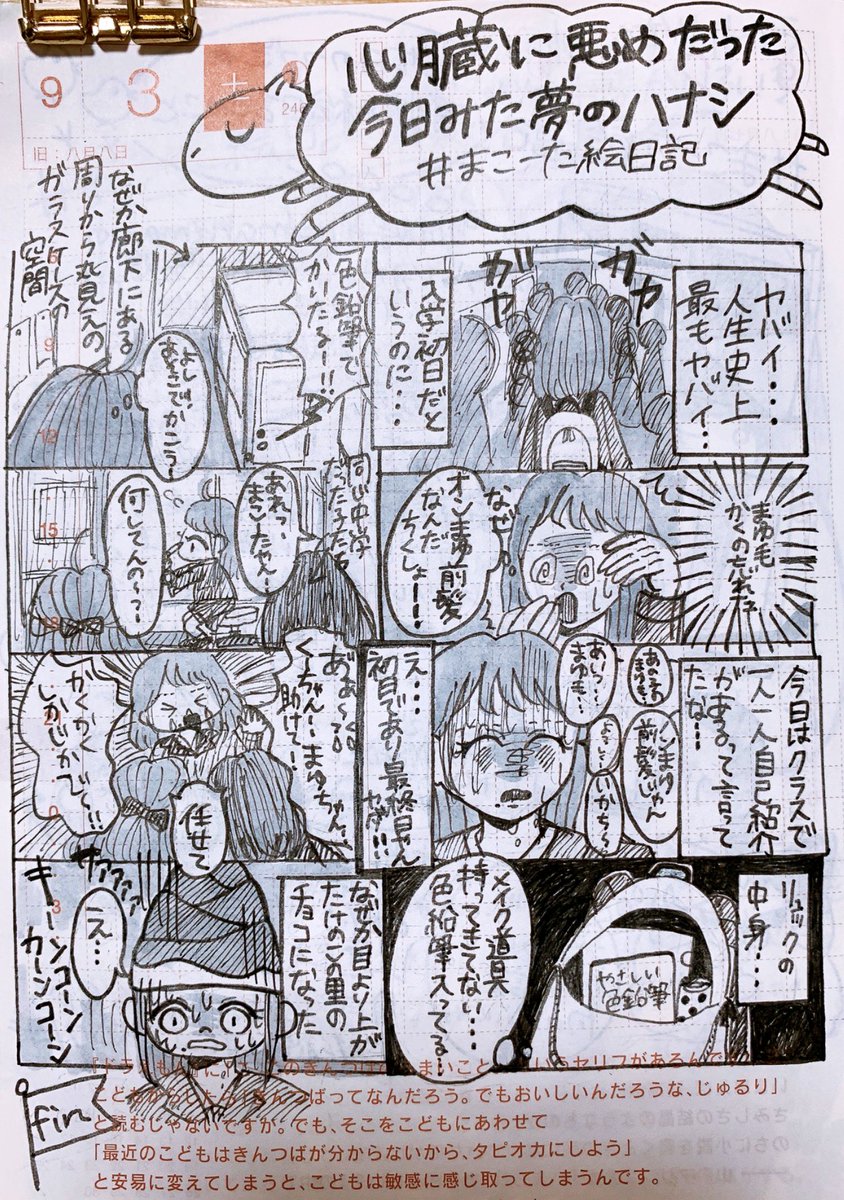 9
3
土
246
旧:八月八日
心臓に悪めだった
今日みた夢のハナシ
#まこーた絵日記
ヤバイ・・・
人生史上
最もヤバイ・・
ガヤ
ガヤ
入学初日だと
いうのに・・・
まゆ毛
かくの忘れた
なぜ
オンまゆ前髪
なんだ
ちくしょー!!
今日はクラスで
一人一人自己紹介
があるって言って
たな…
あの子
まゆ毛…
あら…
まゆ毛…
オンまゆ
前髪じゃん
いかち〜
え・・・
初日であり最終日やん
ヤダ!!
リュックの
中身・・・
やさしい
色鉛筆
メイク道具
持ってきてない…
色鉛筆入ってる…
色鉛筆で
かいたるー!!
なぜか廊下にある
周りから丸見えの
ガラスケースの
空間
よし
あそこでかこう!
同じ中学
だった子たち
あれっ、
まこーたちゃん
何してんの〜?
あぁ〜
くーちゃん!まゆちゃん、
助けて!
かくかく
しかじかで〜!!
任せて
なぜか目より上が
たけのこの里の
チョコになった
サァァァァ
え…
キーンコーン
カーンコーン
fin
こどもからしたら「きんつばってなんだろう。でもおいしいんだろうな、じゅるり」
と読むじゃないですか。でも、そこをこどもにあわせて
「最近のこどもはきんつばが分からないから、タピオカにしよう」
と安易に変えてしまうと、こどもは敏感に感じ取ってしまうんです。